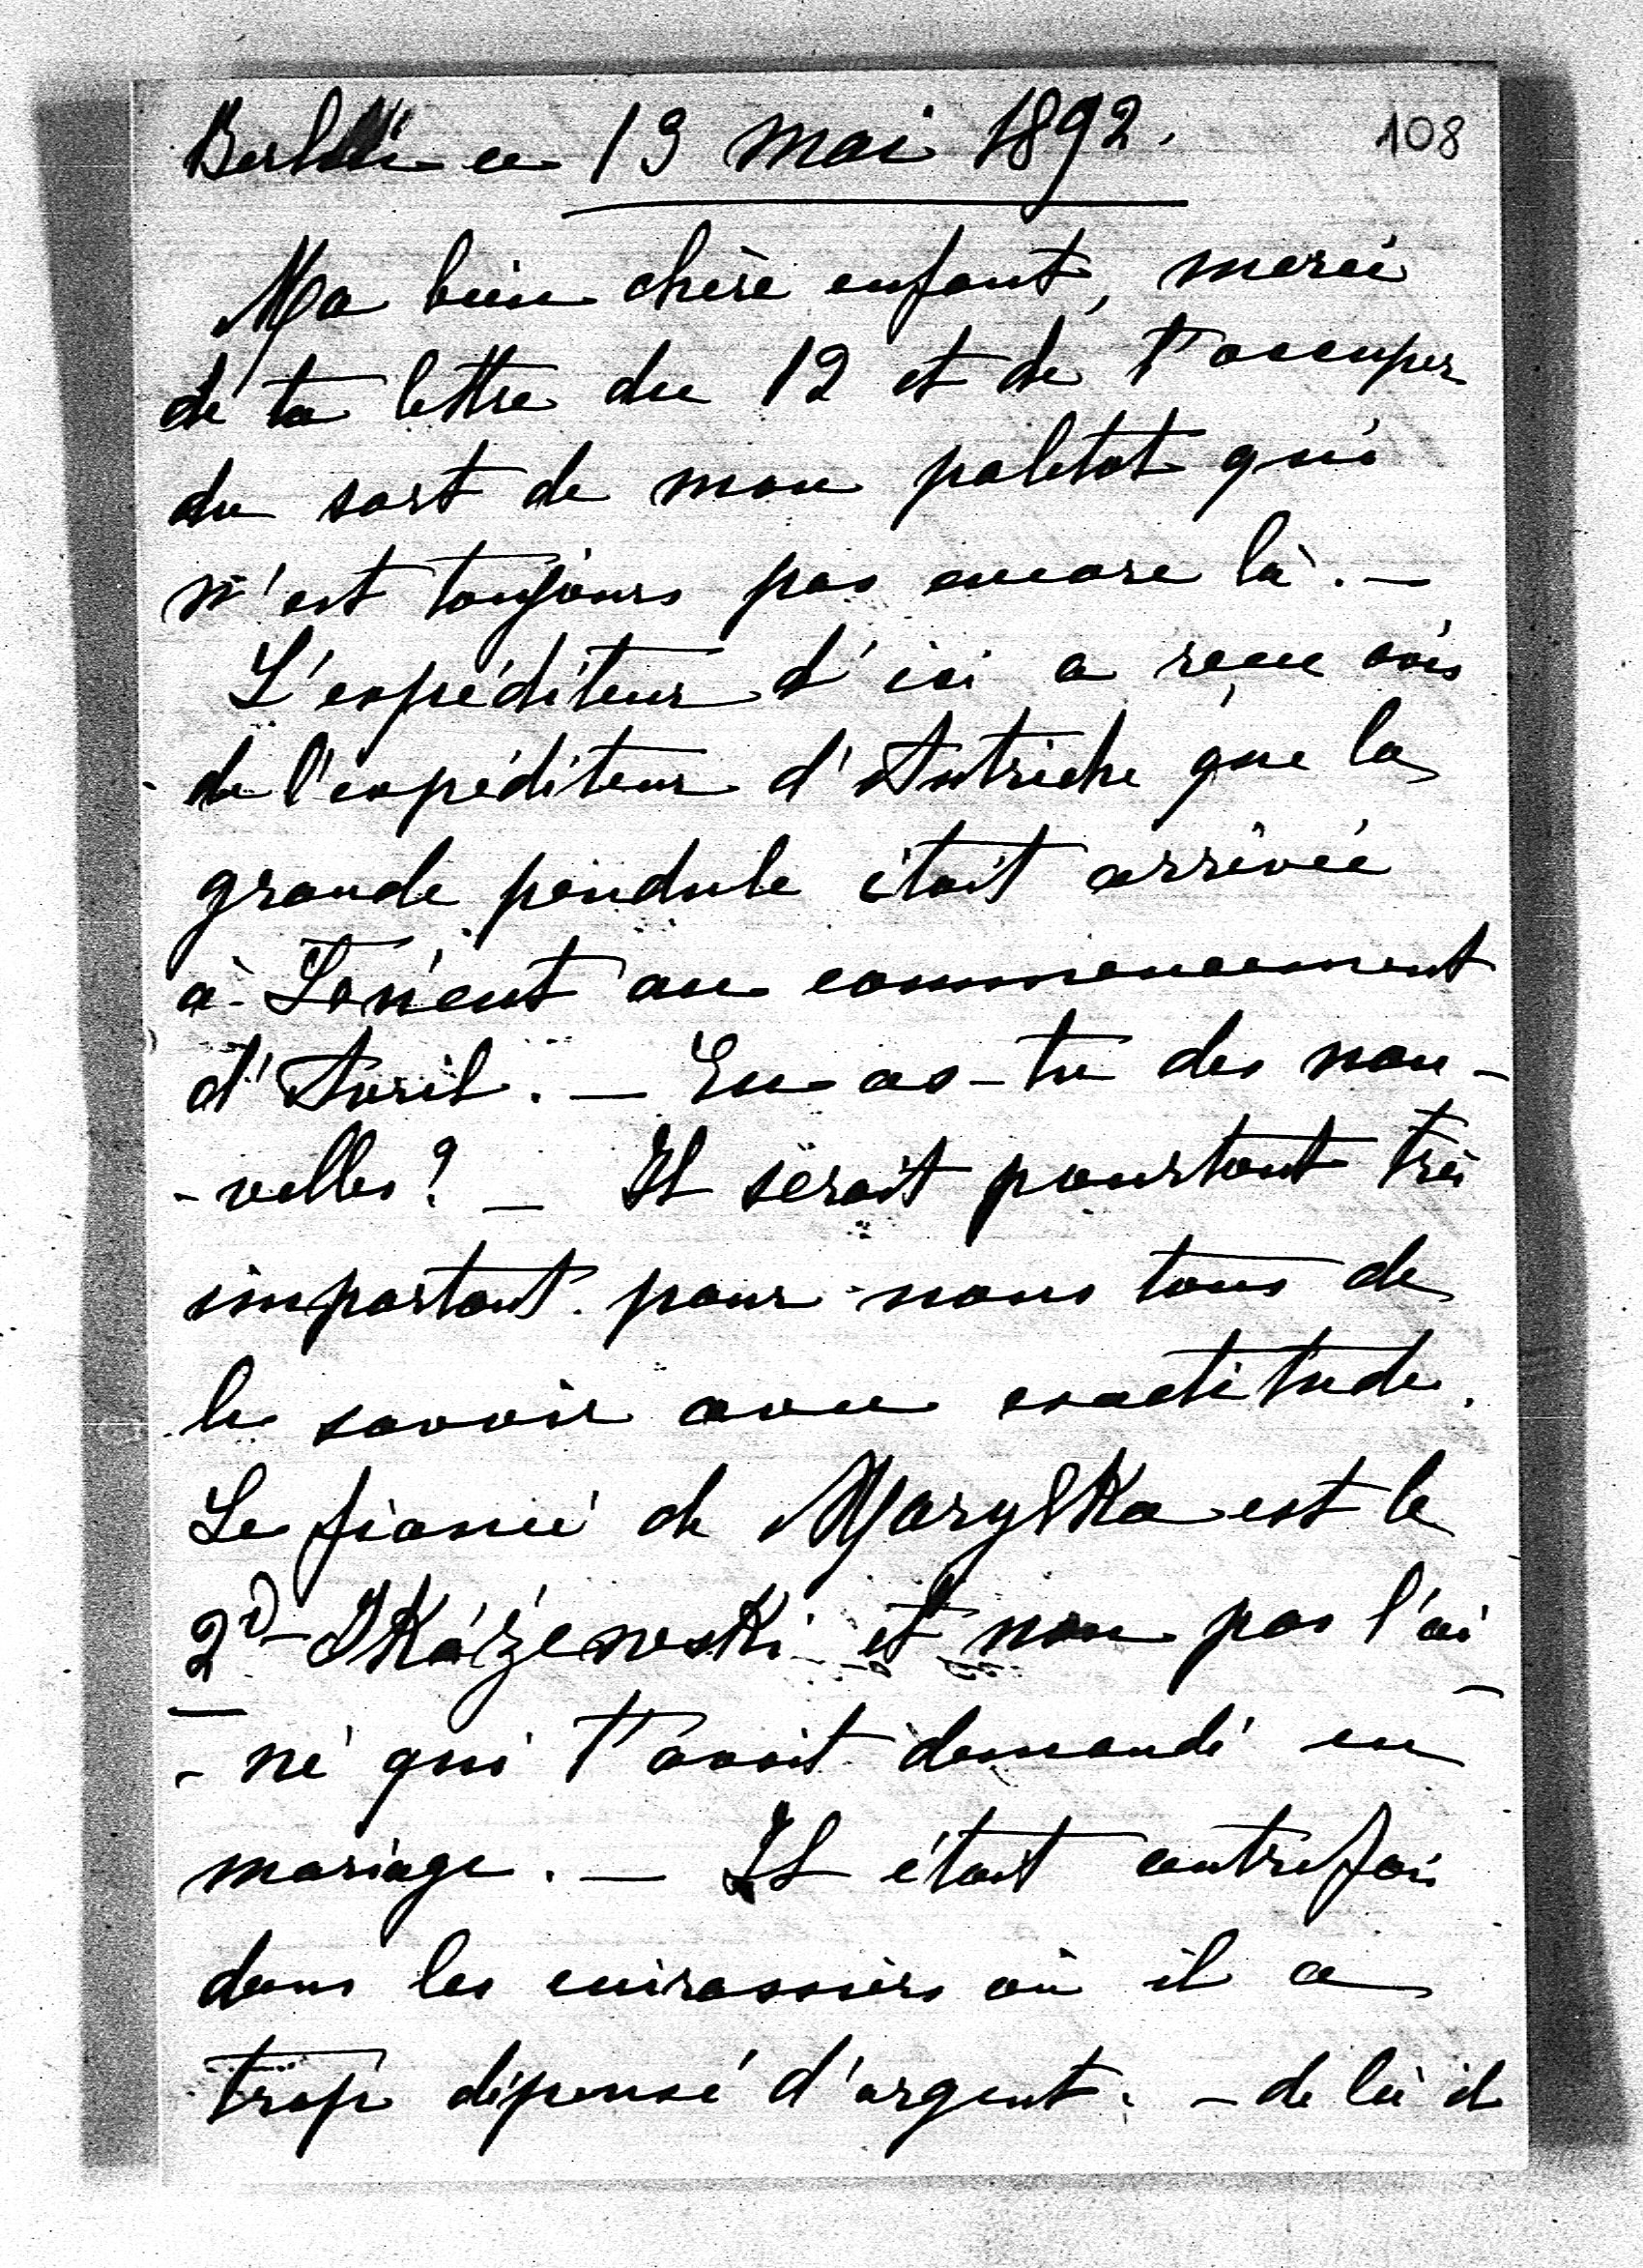 Berlin ce 13 mai 1892. 108
Ma bien chère enfant, merci
de ta lettre du 12 et de t'occuper
du sort de mon paletot qui
n'est toujours pas encore là. —
L'expéditeur d'ici a reçu avis
de l'expéditeur d'Autriche que la
grande pendule était arrivée
à Łańcut au commencement
d'Avril. — En as-tu des nou-
-velles ? — Il serait pourtant très
important pour nous tous de
le savoir avec exactitude.
Le fiancé de Marylka est le
2d Skórzewski et non pas l'ai-
-né qui t'avait demandé en
mariage. — Il était autrefois
dans les cuirassiers où il a
trop dépensé d'argent. — de là il